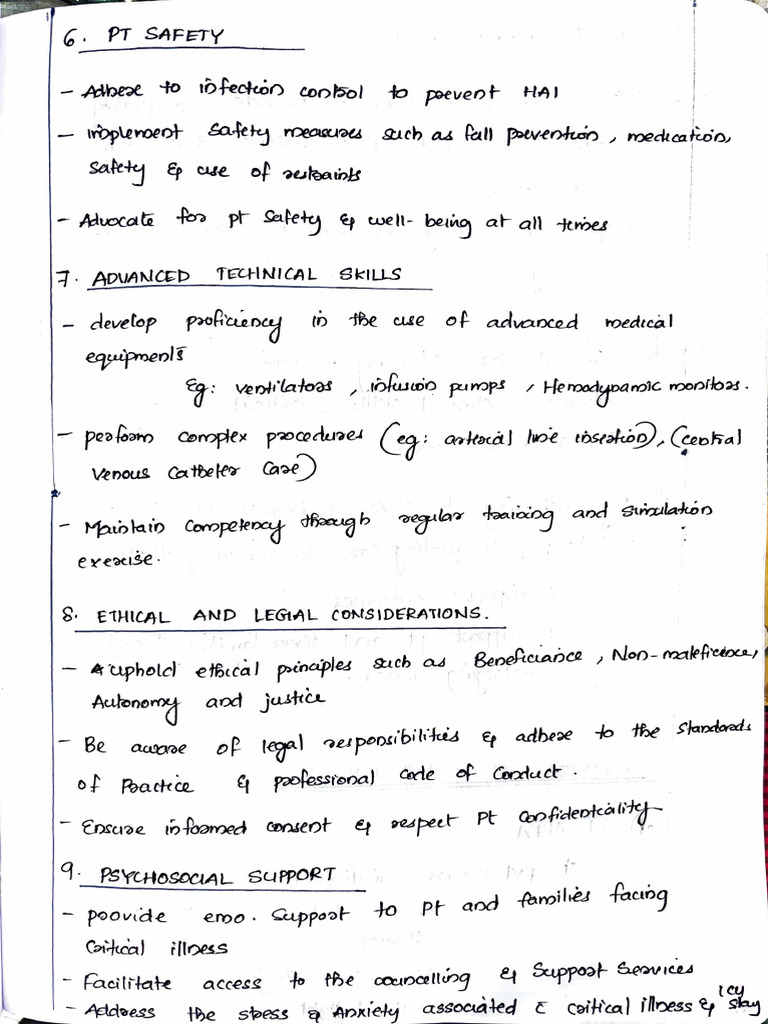 6. PT SAFETY
- Adhere to infection control to prevent HAI
- implement Safety measures such as fall prevention, medication,
Safety & use of restraints
- Advocate for pt Safety & well-being at all times
7. ADVANCED TECHNICAL SKILLS
- develop proficiency in the use of advanced medical
equipments
Eg: ventilators, infusion pumps, Hemodynamic monitors.
- perform complex procedures (eg: arterial line insertion), (central
Venous Catheter Care)
- Maintain Competency through regular training and simulation
exercise.
8. ETHICAL AND LEGIAL CONSIDERATIONS.
- uphold ethical principles such as Beneficiance, Non-maleficence,
Autonomy and justice
- Be aware of legal responsibilities & adhere to the Standards
of Practice & professional Code of Conduct.
- Ensure informed consent & respect Pt Confidentiality
9. PSYCHOSOCIAL SUPPORT
- provide emo. Support to Pt and families facing
Critical illness
- Facilitate access to the councelling & Support Services
- Address the stress & Anxiety associated c̄ critical illness & ICU stay